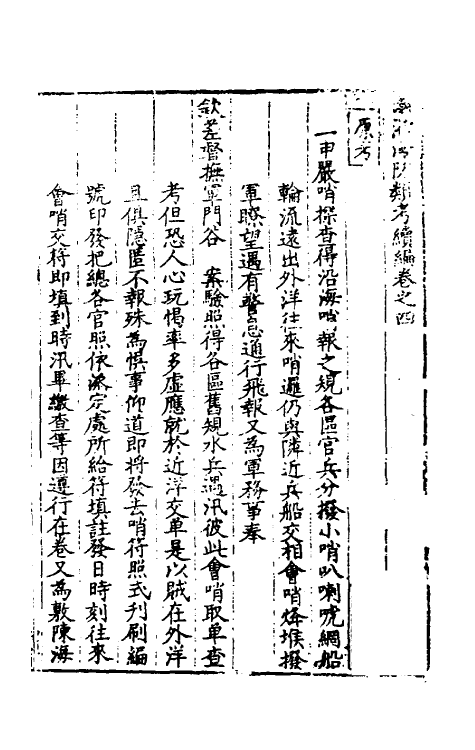 海防類考續編卷之四
原考
一申嚴哨探查得沿海哨報之規各區官兵分撥小哨叭喇唬網船
輪流遠出外洋往來哨邏仍與隣近兵船交相會哨烽堠撥
軍瞭望遇有警急通行飛報又為軍務事奉
欽差督撫軍門谷 案驗照得各區舊規水兵遇汛彼此會哨取单查
考但恐人心玩愒率多虛應就於近洋交单是以賊在外洋
且俱隱匿不報殊為悞事仰道即將發去哨符照式刋刷編
號印發把總各官照依派定處所給符填註發日時刻往來
會哨交符即填到時汛畢繳查等因遵行在卷又為敷陳海